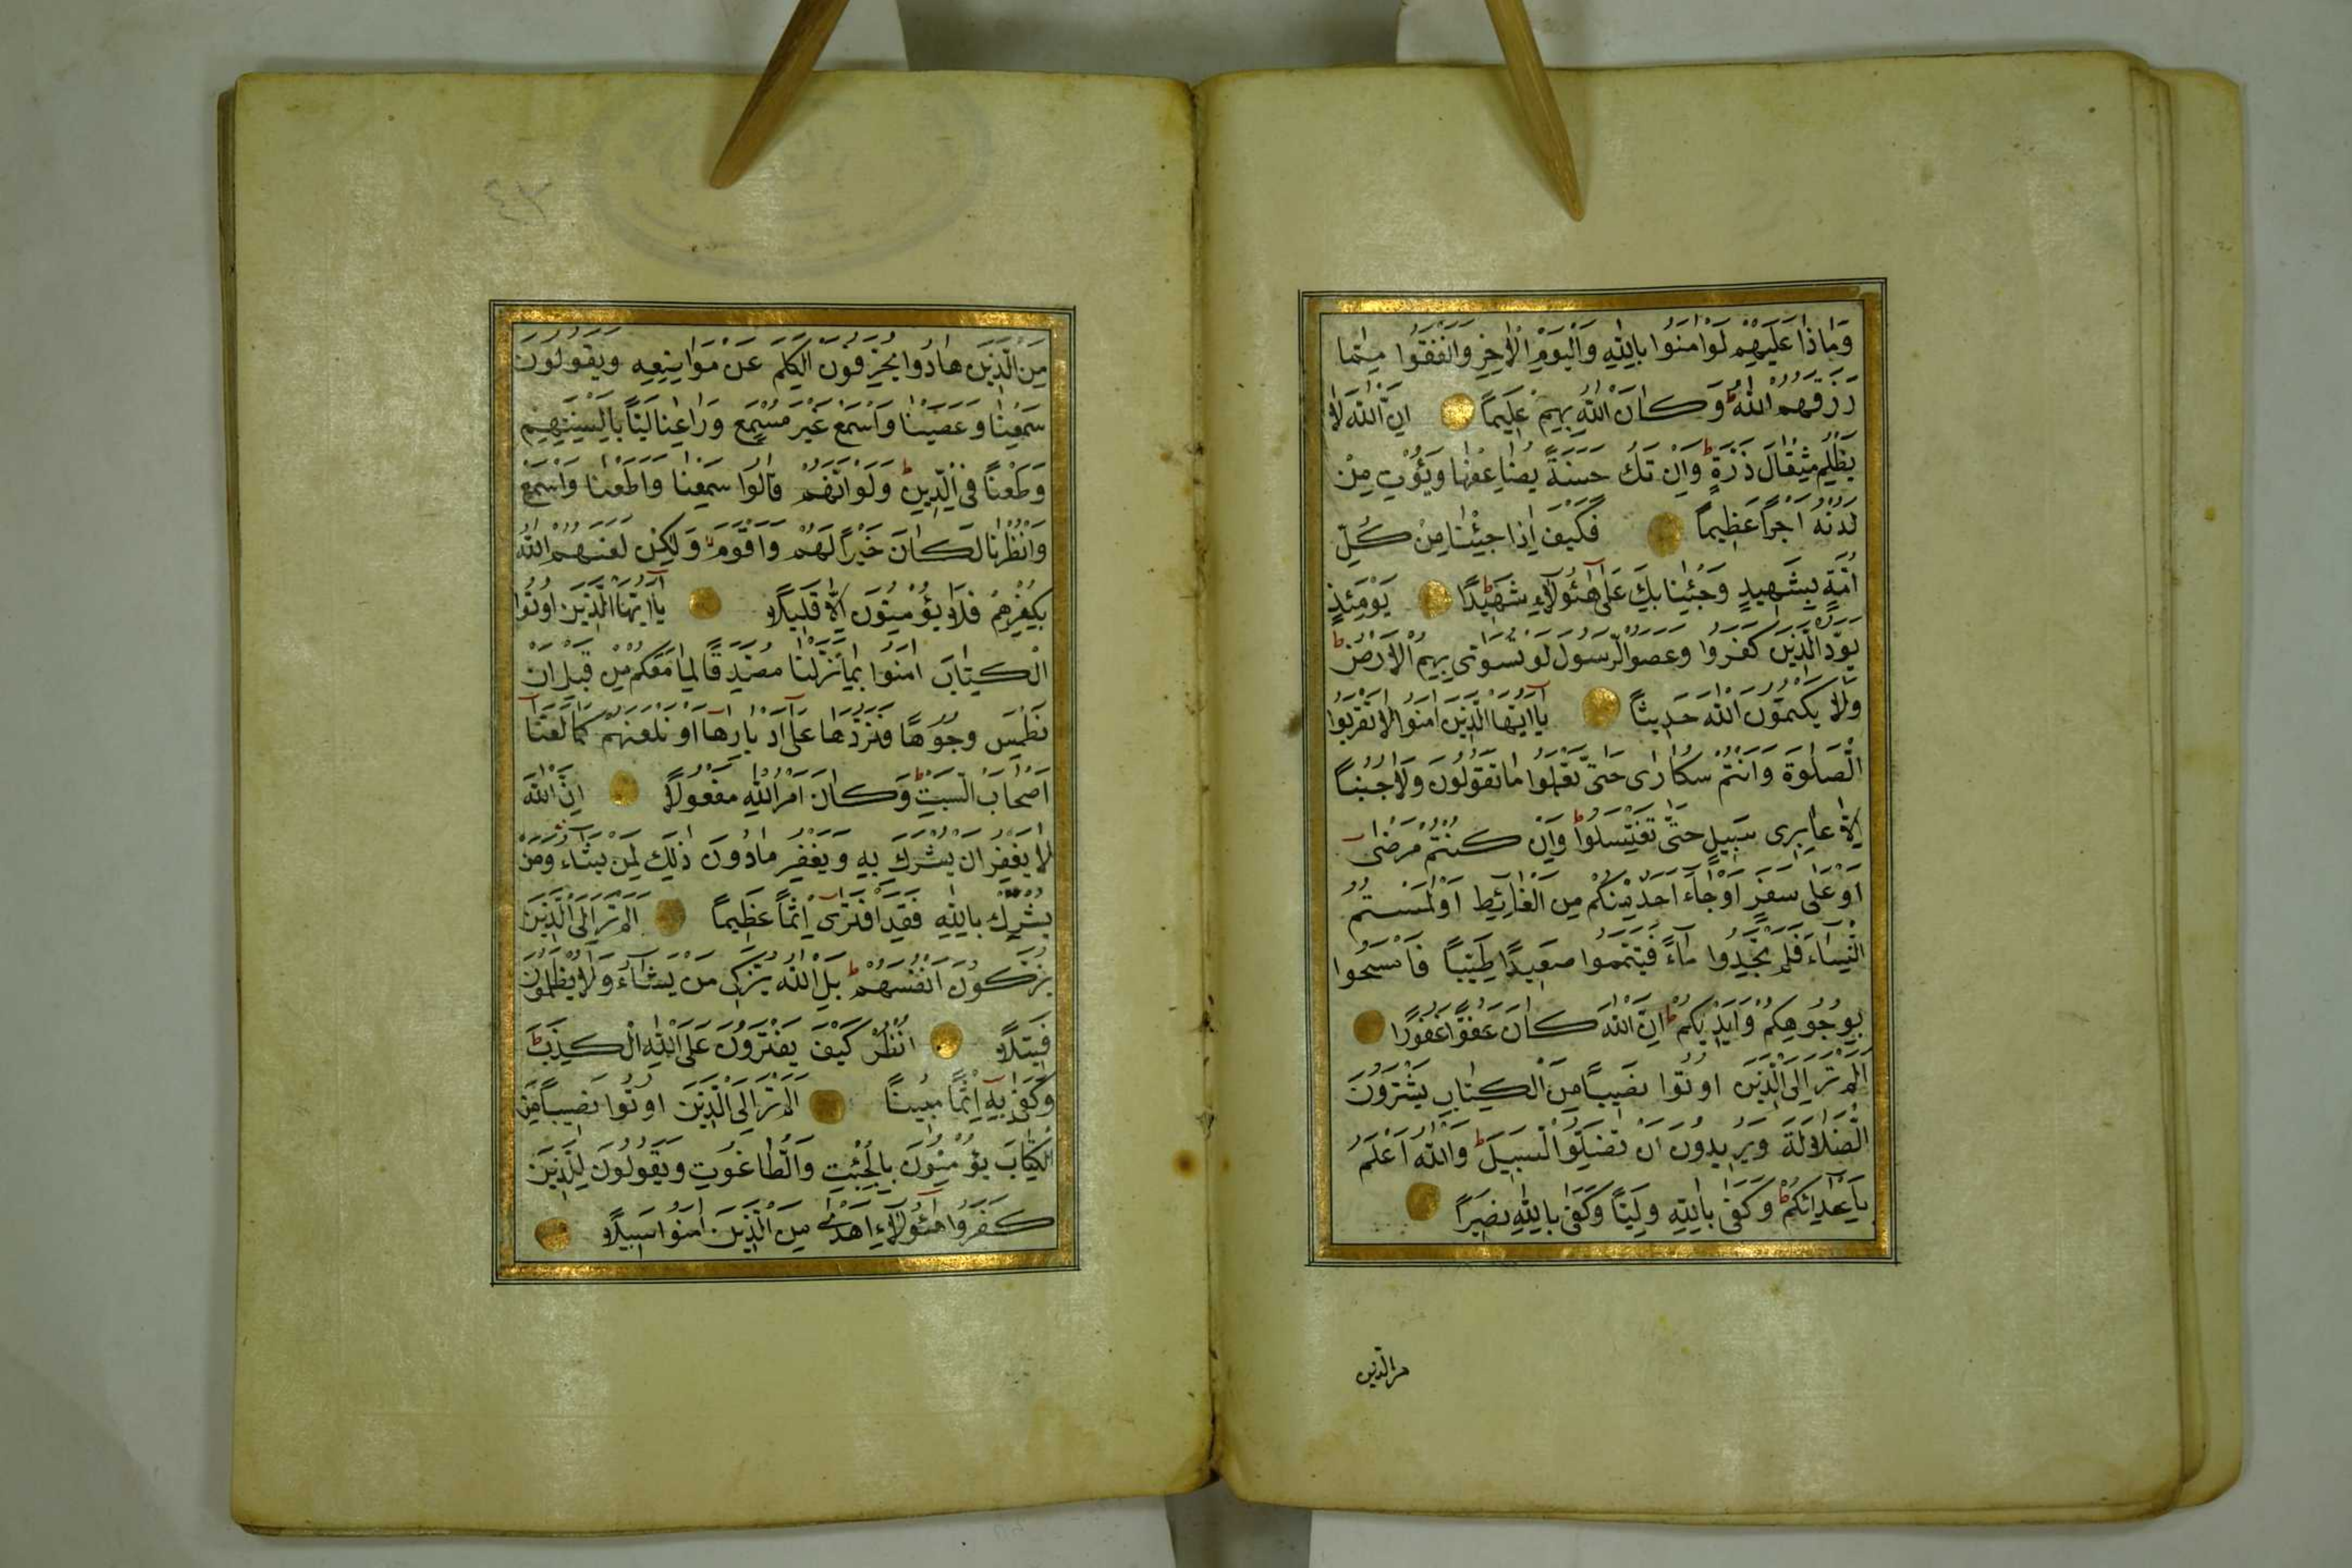 وَمَاذَا عَلَيْهِمْ لَوْ اٰمَنُوا بِاللّٰهِ وَالْيَوْمِ الْاٰخِرِ وَاَنْفَقُوا مِمَّا
رَزَقَهُمُ اللّٰهُ ط وَكَانَ اللّٰهُ بِهِمْ عَلِيمًا اِنَّ اللّٰهَ لَا
يَظْلِمُ مِثْقَالَ ذَرَّةٍ ط وَاِنْ تَكُ حَسَنَةً يُضَاعِفْهَا وَيُؤْتِ مِنْ
لَدُنْهُ اَجْرًا عَظِيمًا فَكَيْفَ اِذَا جِئْنَا مِنْ كُلِّ
اُمَّةٍ بِشَهِيدٍ وَجِئْنَا بِكَ عَلٰى هٰٓؤُلَٓاءِ شَهِيدًا ط يَوْمَئِذٍ
يَوَدُّ الَّذِينَ كَفَرُوا وَعَصَوُا الرَّسُولَ لَوْ تُسَوّٰى بِهِمُ الْاَرْضُ ط
وَلَا يَكْتُمُونَ اللّٰهَ حَدِيثًا يَٓا اَيُّهَا الَّذِينَ اٰمَنُوا لَا تَقْرَبُوا
الصَّلٰوةَ وَاَنْتُمْ سُكَارٰى حَتّٰى تَعْلَمُوا مَا تَقُولُونَ وَلَا جُنُبًا
اِلَّا عَابِرِى سَبِيلٍ حَتّٰى تَغْتَسِلُوا ط وَاِنْ كُنْتُمْ مَرْضٰى
اَوْ عَلٰى سَفَرٍ اَوْ جَٓاءَ اَحَدٌ مِنْكُمْ مِنَ الْغَٓائِطِ اَوْ لٰمَسْتُمُ
النِّسَٓاءَ فَلَمْ تَجِدُوا مَٓاءً فَتَيَمَّمُوا صَعِيدًا طَيِّبًا فَامْسَحُوا
بِوُجُوهِكُمْ وَاَيْدِيكُمْ ط اِنَّ اللّٰهَ كَانَ عَفُوًّا غَفُورًا
اَلَمْ تَرَ اِلَى الَّذِينَ اُوتُوا نَصِيبًا مِنَ الْكِتَابِ يَشْتَرُونَ
الضَّلَالَةَ وَيُرِيدُونَ اَنْ تَضِلُّوا السَّبِيلَ ط وَاللّٰهُ اَعْلَمُ
بِاَعْدَٓائِكُمْ ط وَكَفٰى بِاللّٰهِ وَلِيًّا وَكَفٰى بِاللّٰهِ نَصِيرًا
من الذين
٤٣
مِنَ الَّذِينَ هَادُوا يُحَرِّفُونَ الْكَلِمَ عَنْ مَوَاضِعِهِ وَيَقُولُونَ
سَمِعْنَا وَعَصَيْنَا وَاسْمَعْ غَيْرَ مُسْمَعٍ وَرَاعِنَا لَيًّا بِاَلْسِنَتِهِمْ
وَطَعْنًا فِى الدِّينِ ط وَلَوْ اَنَّهُمْ قَالُوا سَمِعْنَا وَاَطَعْنَا وَاسْمَعْ
وَانْظُرْنَا لَكَانَ خَيْرًا لَهُمْ وَاَقْوَمَ وَلٰكِنْ لَعَنَهُمُ اللّٰهُ
بِكُفْرِهِمْ فَلَا يُؤْمِنُونَ اِلَّا قَلِيلًا يَٓا اَيُّهَا الَّذِينَ اُوتُوا
الْكِتَابَ اٰمِنُوا بِمَا نَزَّلْنَا مُصَدِّقًا لِمَا مَعَكُمْ مِنْ قَبْلِ اَنْ
نَطْمِسَ وُجُوهًا فَنَرُدَّهَا عَلٰٓى اَدْبَارِهَٓا اَوْ نَلْعَنَهُمْ كَمَا لَعَنَّٓا
اَصْحَابَ السَّبْتِ ط وَكَانَ اَمْرُ اللّٰهِ مَفْعُولًا اِنَّ اللّٰهَ
لَا يَغْفِرُ اَنْ يُشْرَكَ بِهِ وَيَغْفِرُ مَا دُونَ ذٰلِكَ لِمَنْ يَشَٓاءُ وَمَنْ
يُشْرِكْ بِاللّٰهِ فَقَدِ افْتَرٰٓى اِثْمًا عَظِيمًا اَلَمْ تَرَ اِلَى الَّذِينَ
يُزَكُّونَ اَنْفُسَهُمْ ط بَلِ اللّٰهُ يُزَكِّى مَنْ يَشَٓاءُ وَلَا يُظْلَمُونَ
فَتِيلًا اُنْظُرْ كَيْفَ يَفْتَرُونَ عَلَى اللّٰهِ الْكَذِبَ ط
وَكَفٰى بِهِٓ اِثْمًا مُبِينًا اَلَمْ تَرَ اِلَى الَّذِينَ اُوتُوا نَصِيبًا مِنَ
الْكِتَابِ يُؤْمِنُونَ بِالْجِبْتِ وَالطَّاغُوتِ وَيَقُولُونَ لِلَّذِينَ
كَفَرُوا هٰٓؤُلَٓاءِ اَهْدٰى مِنَ الَّذِينَ اٰمَنُوا سَبِيلًا